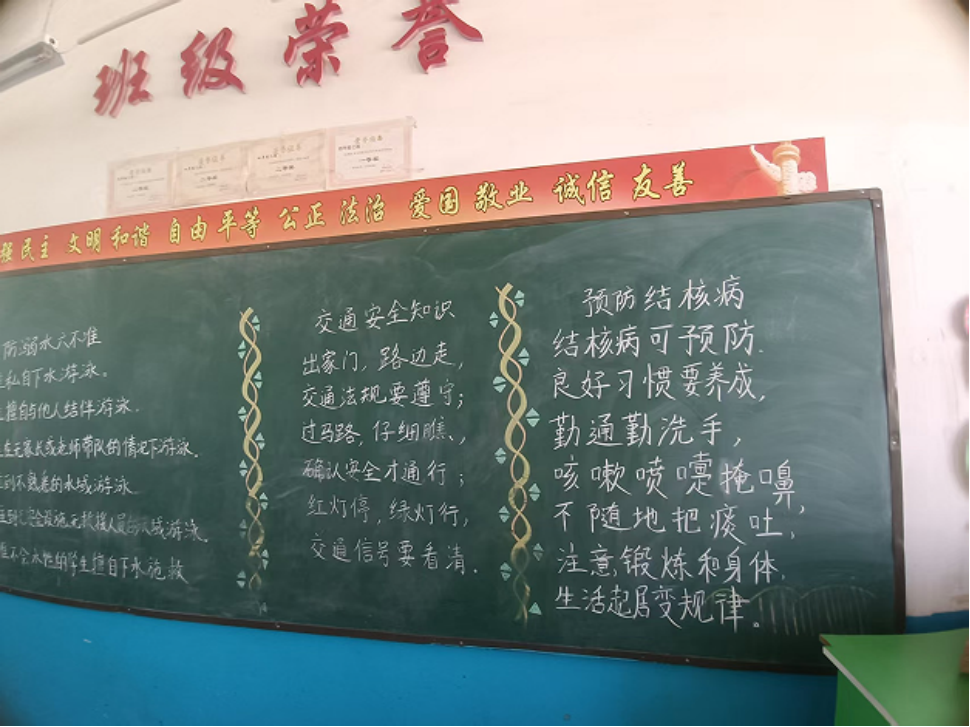 班级荣誉
荣誉证书
荣誉证书
荣誉证书
荣誉证书
二等奖
一等奖
强 民主 文明 和谐 自由 平等 公正 法治 爱国 敬业 诚信 友善
防溺水六不准
私自下水游泳。
擅自与他人结伴游泳.
在无家长或老师带队的情况下游泳。
到不熟悉的水域游泳
到无安全设施、无救援人员的水域游泳.
不会水性的学生擅自下水施救
交通安全知识
出家门,路边走,
交通法规要遵守;
过马路,仔细瞧,
确认安全才通行;
红灯停,绿灯行,
交通信号要看清.
预防结核病
结核病可预防.
良好习惯要养成,
勤通勤洗手,
咳嗽喷嚏掩嗅,
不随地把痰吐,
注意锻炼和身体.
生活起居变规律。